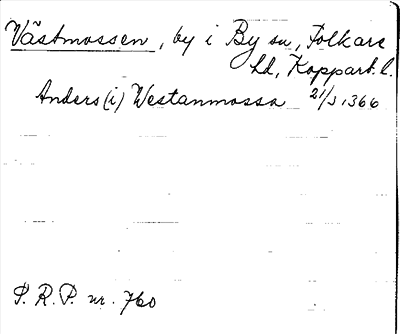 Västmossen, by i By sn, Folkare
hd, Kopparb. l.
Anders (i) Westanmossa 21/3 1366
S. R. P. nr. 760